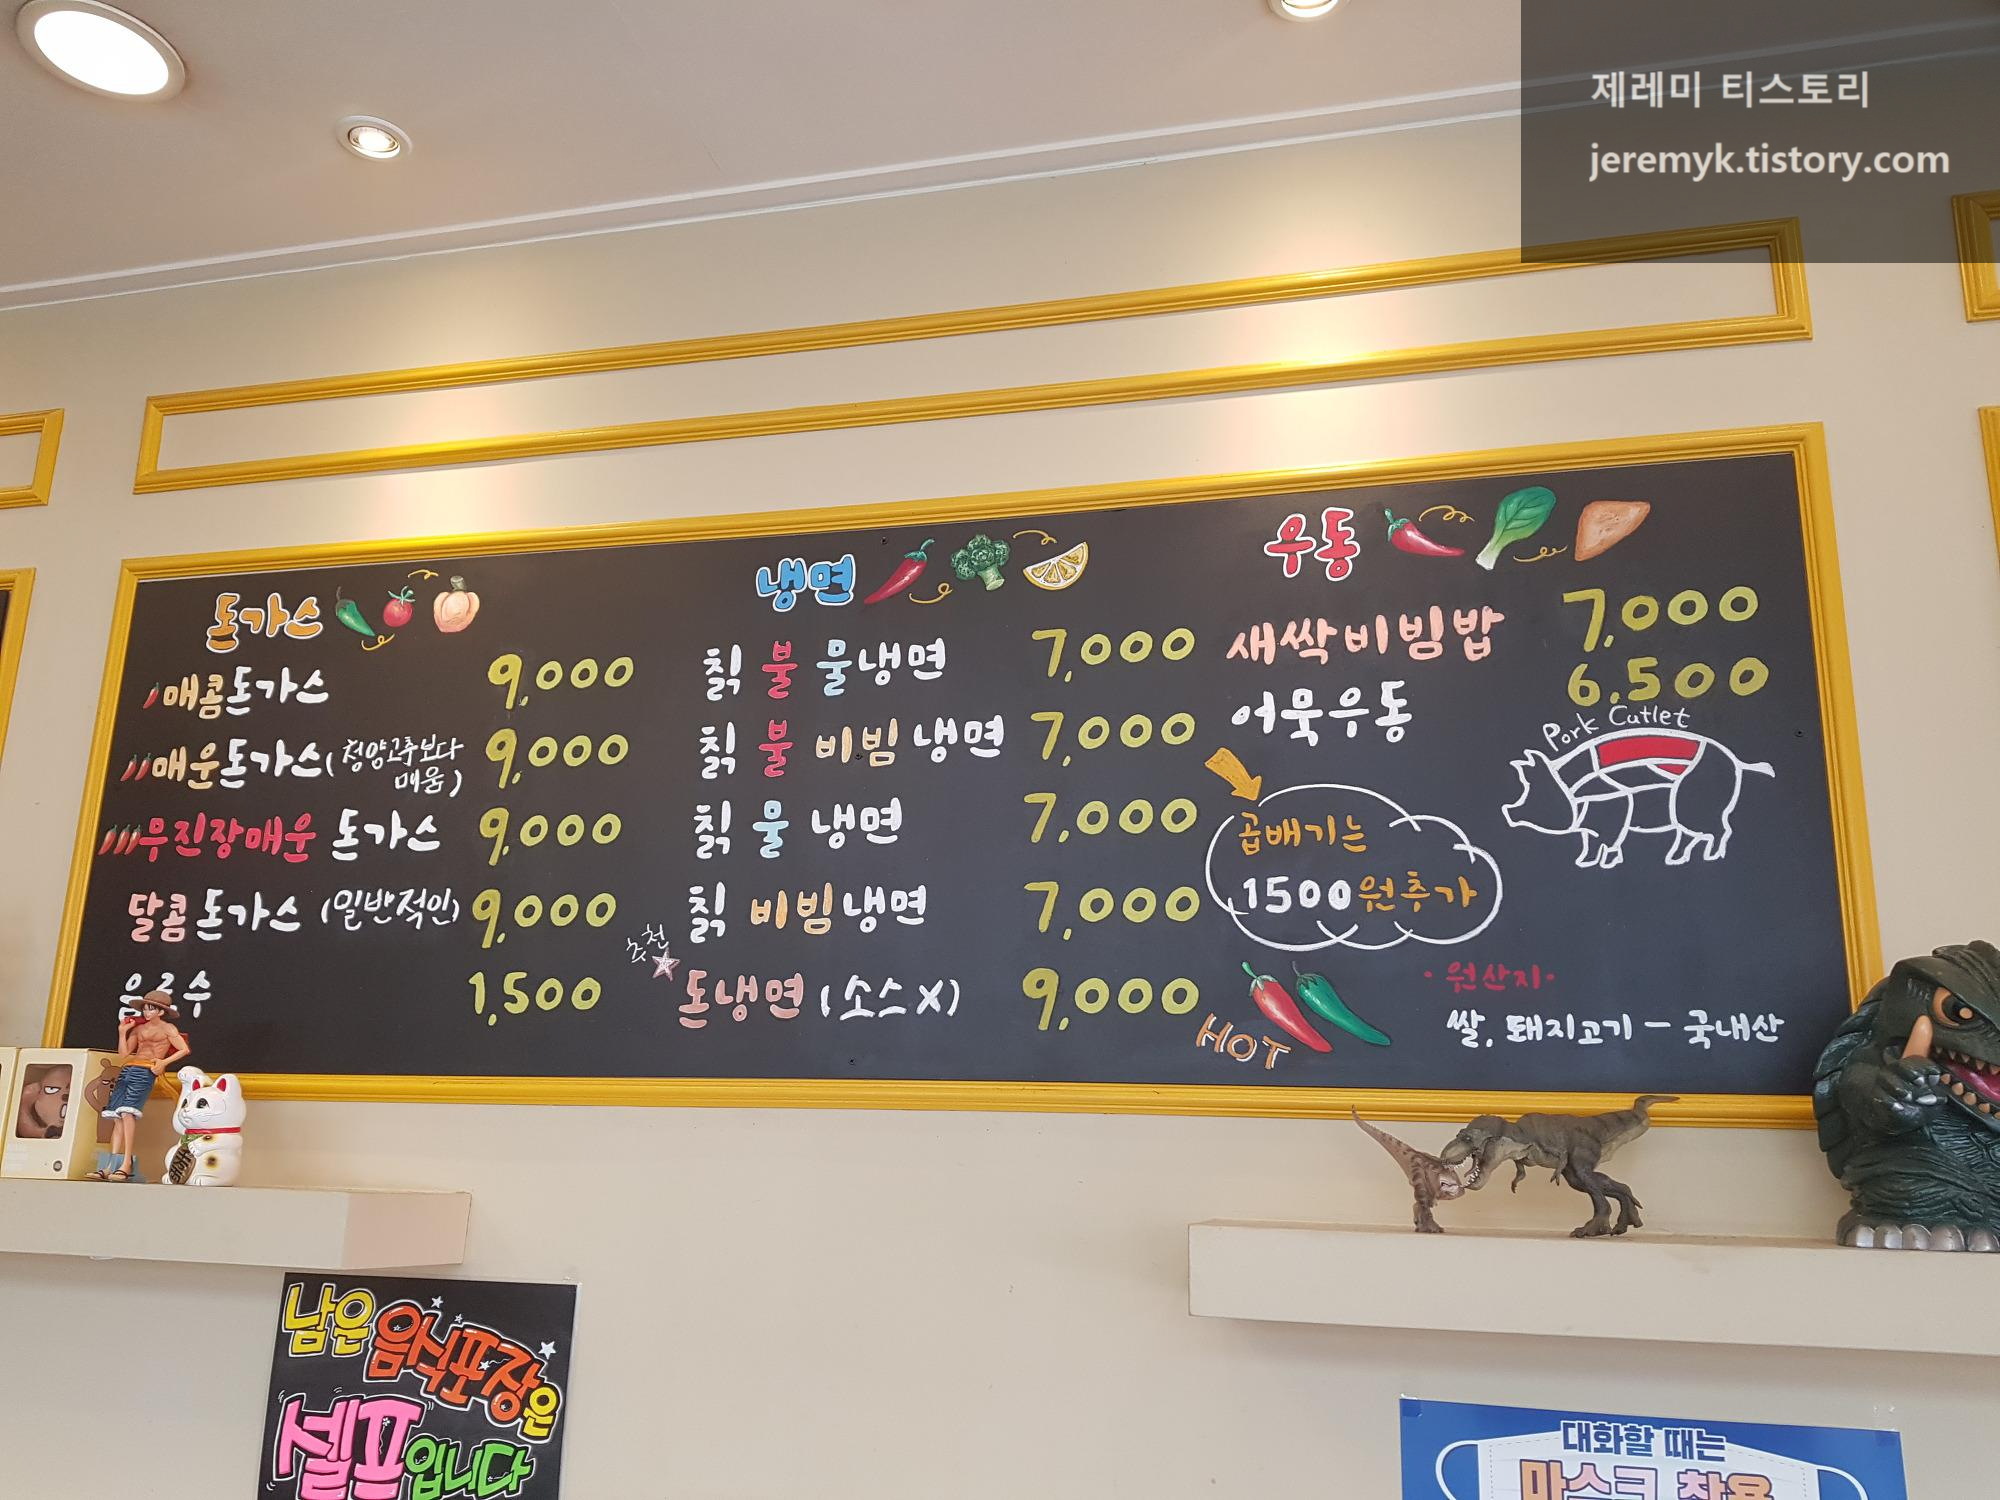 제레미 티스토리
jeremyk.tistory.com
돈가스
매콤돈가스 9,000
매운돈가스(청양고추보다 매움) 9,000
무진장매운 돈가스 9,000
달콤돈가스 (일반적인) 9,000
음료수 1,500
냉면
칡 불 물냉면 7,000
칡 불 비빔냉면 7,000
칡 물 냉면 7,000
칡 비빔냉면 7,000
추천
돈냉면 (소스X) 9,000
우동
새싹비빔밥 7,000
어묵우동 6.500
Pork Cutlet
곱배기는
1500원추가
HOT
·원산지·
쌀, 돼지고기 - 국내산
남은
음식포장은
셀프입니다
대화할 때는
마스크 착용